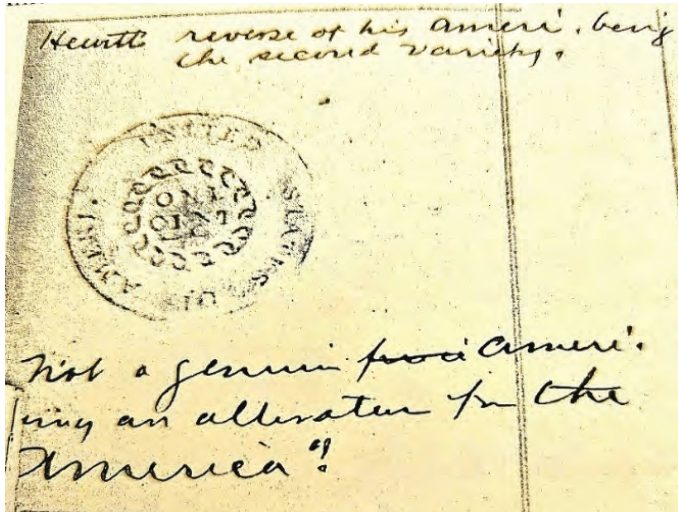 Hewitt reverse of his Ameri. being
the second variety.
UNITED STATES OF AMERI.
ONE
CENT
Not a genuin Ameri.
an alteration fm the
America"!